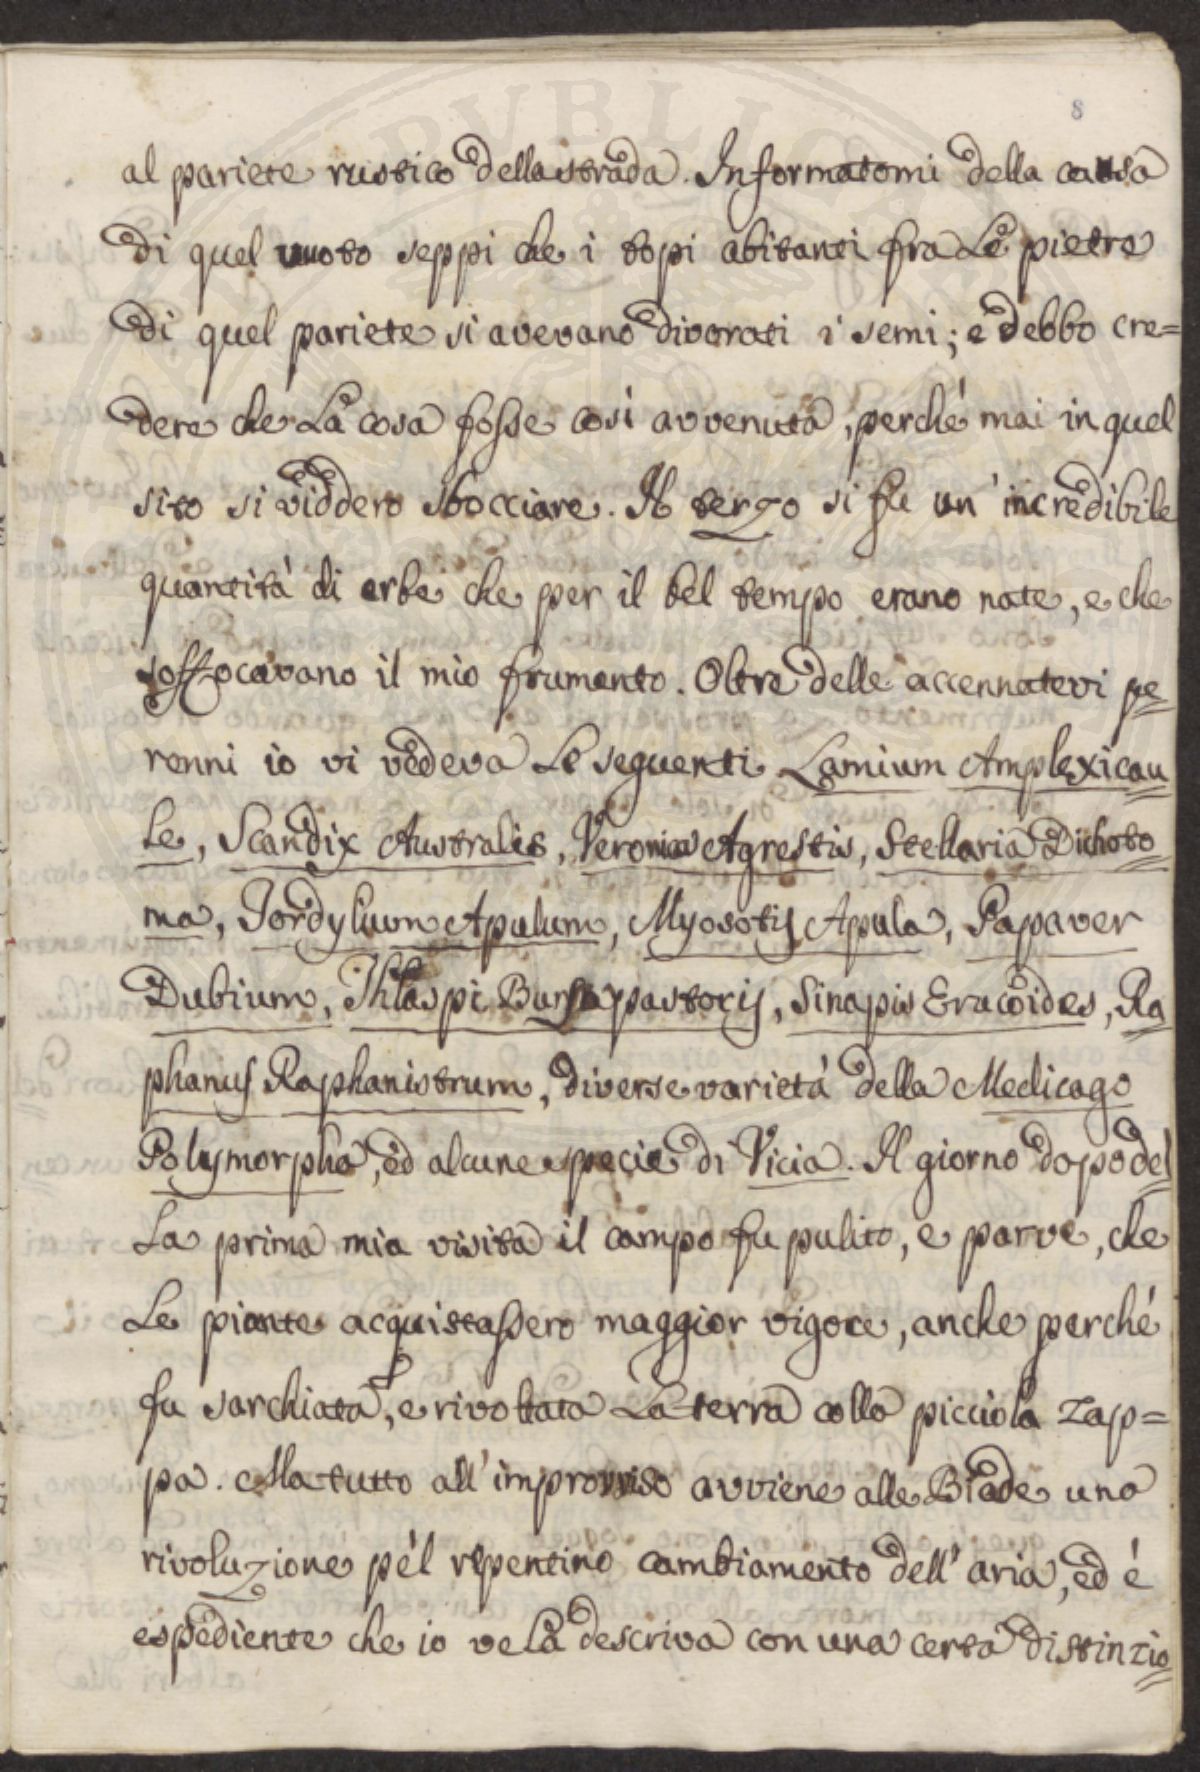 8
al pariete rustico della strada. Informatomi della causa
di quel vuoto seppi che i topi abitanti fra le pietre
di quel pariete si avevano divorati i semi; e debbo cre=
dere che la cosa fosse così avvenuta, perché mai in quel
sito si viddero sbocciare. Il terzo si fu un' incredibile
quantità di erbe che per il bel tempo erano nate, e che
soffocavano il mio frumento. Oltre delle accennatevi pe=
renni io vi vedeva le seguenti Lamium Amplexicau=
le, Scandix Australis, Veronica Agrestis, Stellaria Dichoto=
ma, Tordylium Apulum, Myosotis Apula, Papaver
Dubium, Thlaspi Bursa pastoris, Sinapis Erucoides, Ra=
phanus Raphanistrum, diverse varietà della Medicago
Polymorpha, ed alcune specie di Vicia. Il giorno dopo del=
la prima mia visita il campo fu pulito, e parve, che
le piante acquistassero maggior vigore, anche perché
fu sarchiata, e rivoltata la terra colla picciola zap=
pa. Ma tutto all' improvviso avviene alle Biade una
rivoluzione pel repentino cambiamento dell' aria, ed é
espediente che io ve la descriva con una certa distinzio=